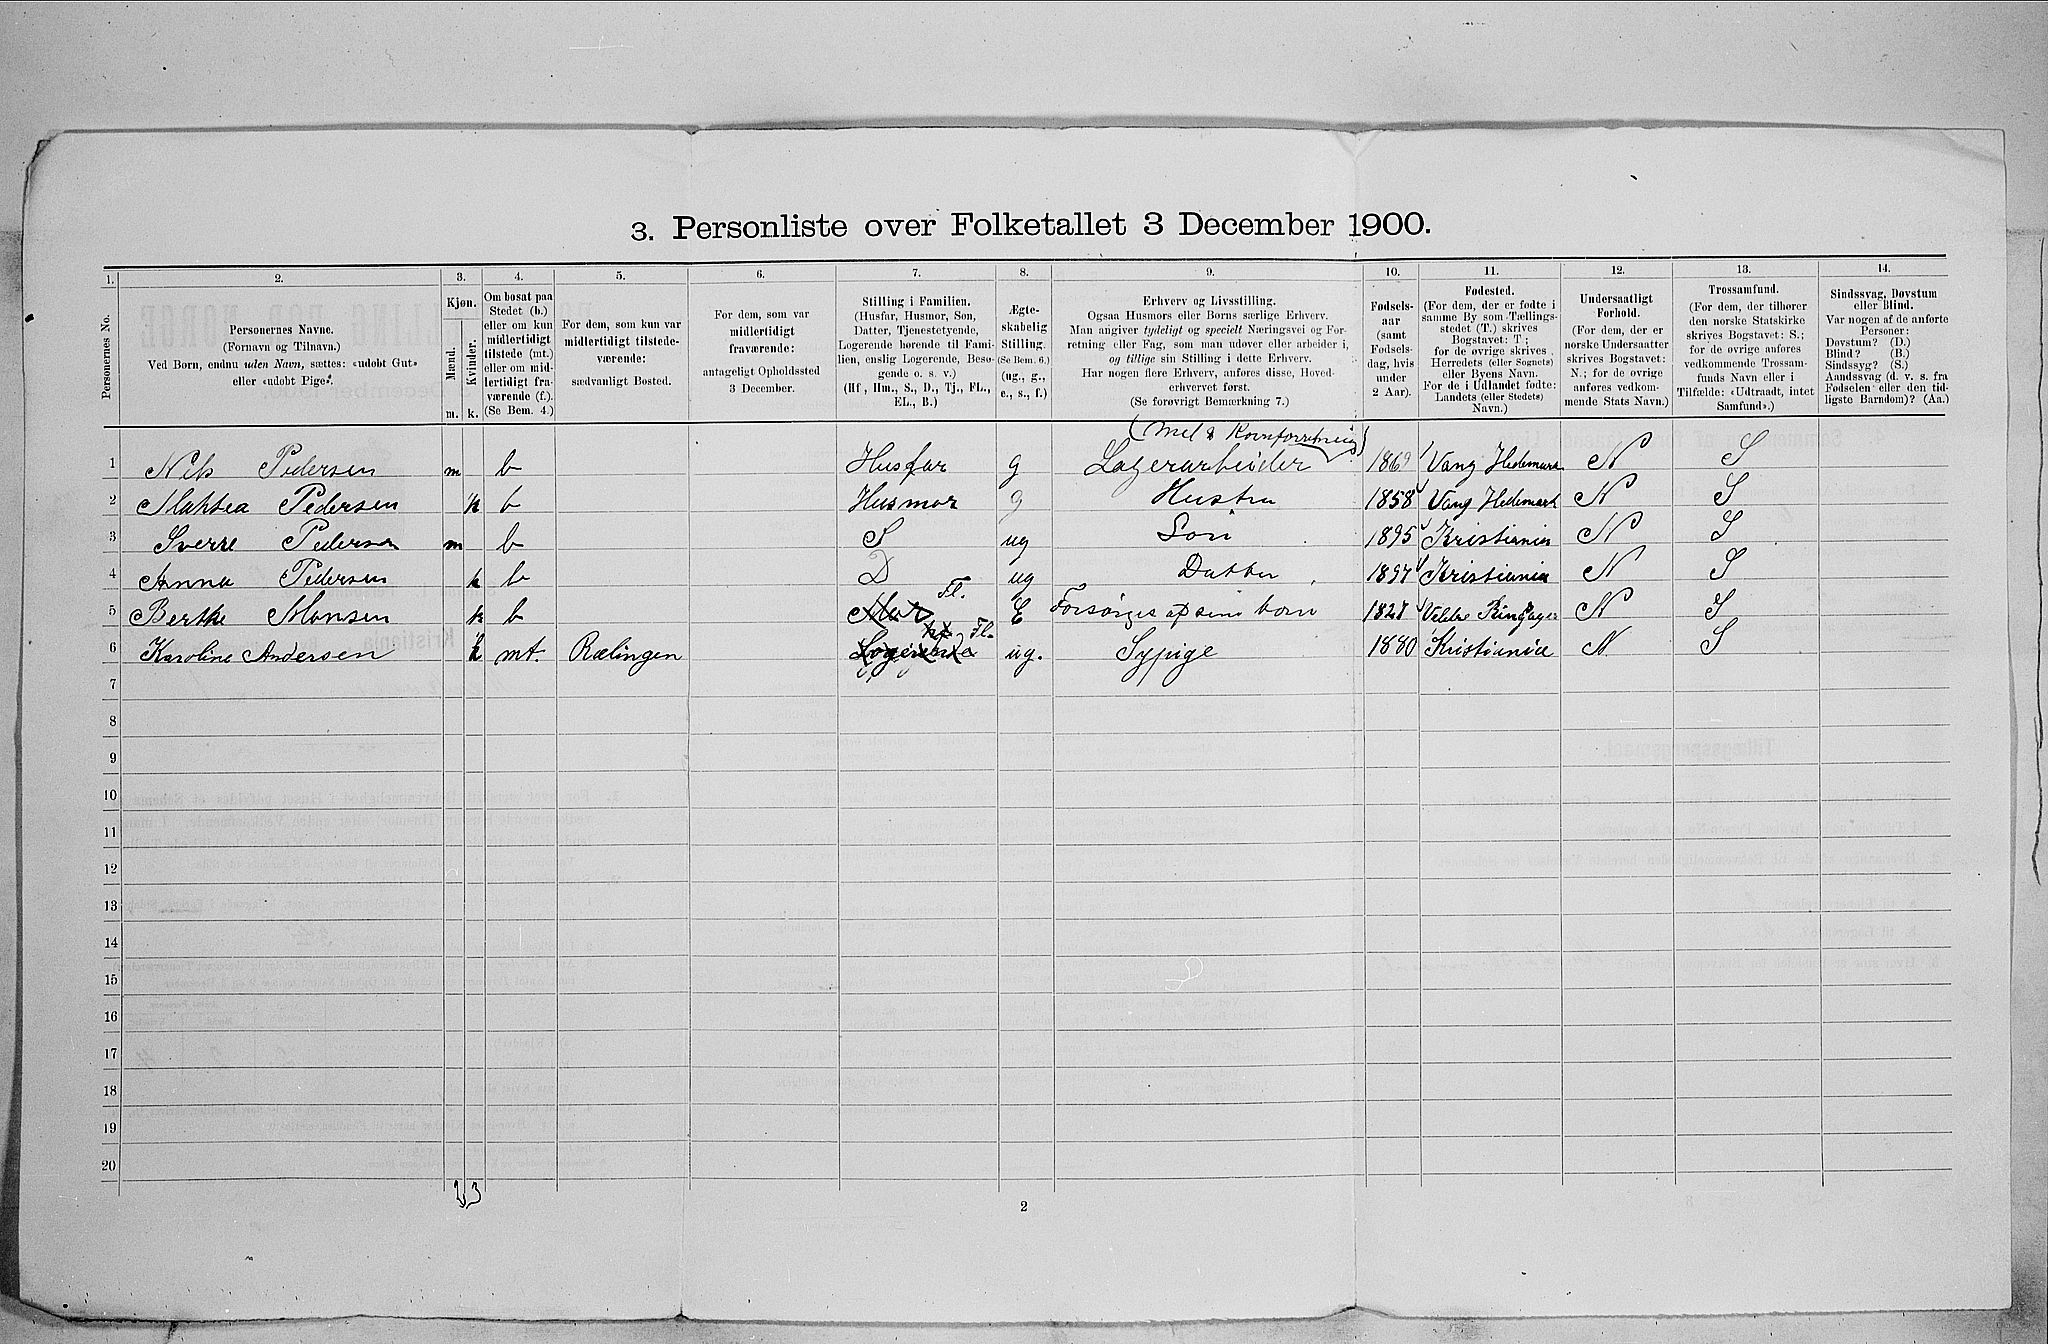 3. Personliste over Folketallet 3 December 1900.
1. 2. 3. 4. 5. 6. 7. 8. 9. 10. 11. 12. 13. 14.
Personernes No.
Personernes Navne.
(Fornavn og Tilnavn.)
Ved Børn, endnu uden Navn, sættes: «udøbt Gut»
eller «udøbt Pige».
Kjøn.
Mænd.
Kvinder.
m. k.
Om bosat paa
Stedet (b.)
eller om kun
midlertidigt
tilstede (mt.)
eller om mid-
lertidigt fra-
værende (f.).
(Se Bem. 4.)
For dem, som kun var
midlertidigt tilstede-
værende:
sædvanligt Bosted.
For dem, som var
midlertidigt
fraværende:
antageligt Opholdssted
3 December.
Stilling i Familien.
(Husfar, Husmor, Søn,
Datter, Tjenestetyende,
Logerende hørende til Fami-
lien, enslig Logerende, Besø-
gende o. s. v.)
(Hf, Hm., S., D., Tj., FL.,
EL., B.)
Ægte-
skabelig
Stilling.
(Se Bem. 6.)
(ug., g.,
e., s., f.)
Erhverv og Livsstilling.
Ogsaa Husmors eller Børns særlige Erhverv.
Man angiver tydeligt og specielt Næringsvei og For-
retning eller Fag, som man udøver eller arbeider i,
og tillige sin Stilling i dette Erhverv.
Har nogen flere Erhverv, anføres disse, Hoved-
erhvervet først.
(Se forøvrigt Bemærkning 7.)
Fødsels-
aar
(samt
Fødsels-
dag, hvis
under
2 Aar).
Fødested.
(For dem, der er fødte i
samme By som Tællings-
stedet (T.) skrives
Bogstavet: T;
for de øvrige skrives
Herredets (eller Sognets)
eller Byens Navn.
For de i Udlandet fødte:
Landets (eller Stedets)
Navn.)
Undersaatligt
Forhold.
(For dem, der er
norske Undersaatter
skrives Bogstavet:
N.; for de øvrige
anføres vedkom-
mende Stats Navn.)
Trossamfund.
(For dem, der tilhører
den norske Statskirke
skrives Bogstavet: S.;
for de øvrige anføres
vedkommende Trossam-
funds Navn eller i
Tilfælde: «Udtraadt, intet
Samfund».)
Sindssvag, Døvstum
eller Blind.
Var nogen af de anførte
Personer:
Døvstum? (D.)
Blind? (B.)
Sindssyg? (S.)
Aandssvag (d. v. s. fra
Fødselen eller den tid-
ligste Barndom)? (Aa.)
(Mel & Kornforretning)
1 Nils Pedersen m b Husfar g Lagerarbeider Vang Hedemark N S
2 Mathea Pedersen k b Husmor g Hustru 1858 Vang Hedemark N S
3 Sverre Pedersen m b S ug Søn 1895 Kristiania N S
4 Anna Pedersen k b D ug Datter 1897 Kristiania N S
5 Berthe Monsen k b Mor Fl. E Forsørges af sine børn Ringsager N S
6 Karoline Andersen k mt. Rælingen Logerende Fl. ug. Sypige 1880 Kristiania N S
7
8
9
10
11
12
13
14
15
16
17
18
19
20
2